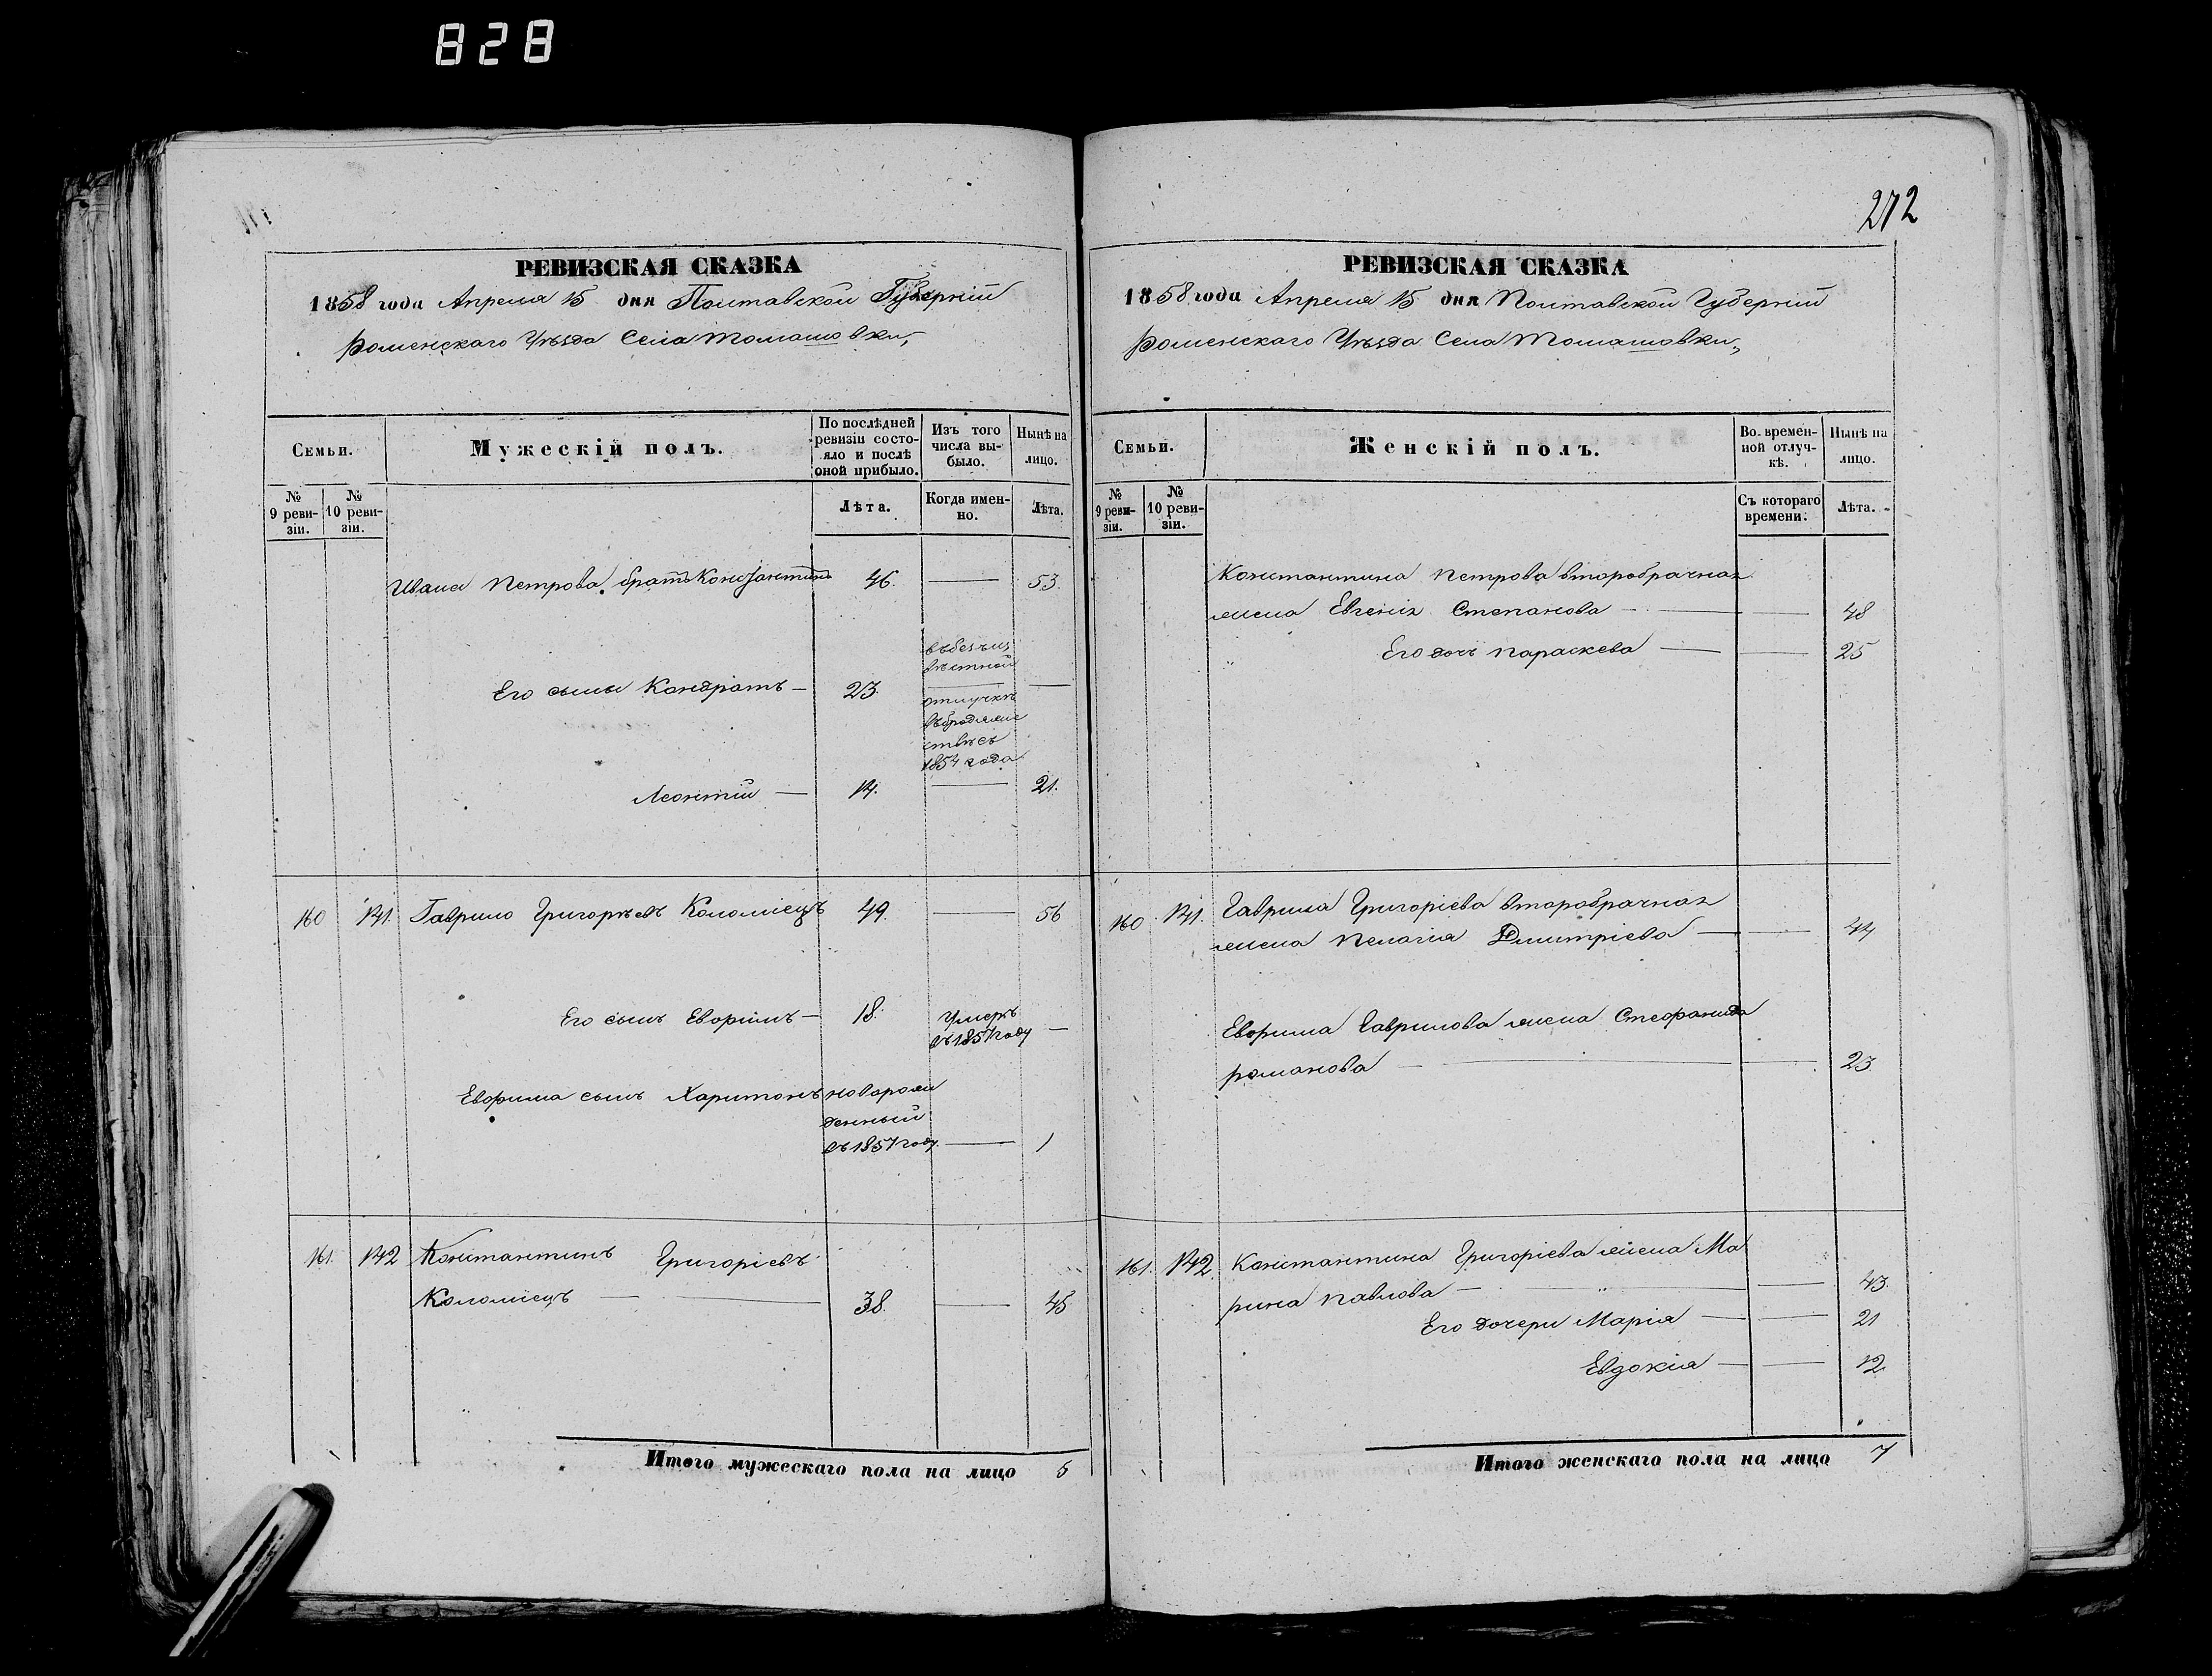 828
272
РЕВИЗСКАЯ СКАЗКА
1858 года Апреля 15 дня Полтавской Губерніи
Роменскаго Уѣзда Села Томашовки,
Семьи.
Мужескій полъ.
По послѣдней ревизіи состояло и послѣ оной прибыло.
Изъ того числа выбыло.
Нынѣ на лицо.
№ 9 ревизіи.
№ 10 ревизіи.
Лѣта.
Когда именно.
Лѣта.
Ивана Петрова братъ Константинъ 46. — 53.
въ безъиз
вѣстной
Его сыны Кондратъ — 23. —
отлучкѣ
въ бродяже
ствѣ съ
1854 года
Леонтій — 14. — 21.
160 141. Гаврило Григорьевъ Коломіецъ 49. — 56
Его сынъ Евфимъ — 18. Умеръ
въ 1857 году —
Евфима сынъ Харитонъ новорож
денный
въ 1857 году — 1
161. 142 Константинъ Григоріевъ
Коломіецъ — — 38. — 45
Итого мужескаго пола на лицо 5
РЕВИЗСКАЯ СКАЗКА
1858 года Апреля 15 дня Полтавской Губерніи
Роменскаго Уѣзда Села Томашовки,
Семьи.
Женскій полъ.
Во временной отлучкѣ.
Нынѣ на лицо.
№ 9 ревизіи.
№ 10 ревизіи.
Съ котораго времени.
Лѣта.
Константина Петрова второбрачная
жена Евгенія Степанова — — 48
Его дочь Параскева — — 25
160 141. Гаврила Григоріева второбрачная
жена Пелагія Дмитріева — — 44
Евфима Гаврилова жена Стефанида
Романова — — 23
161. 142. Константина Григоріева жена Ма
рина Павлова — — 43.
Его дочери Марія — — 21
Евдокія — — 12
Итого женскаго пола на лицо 7